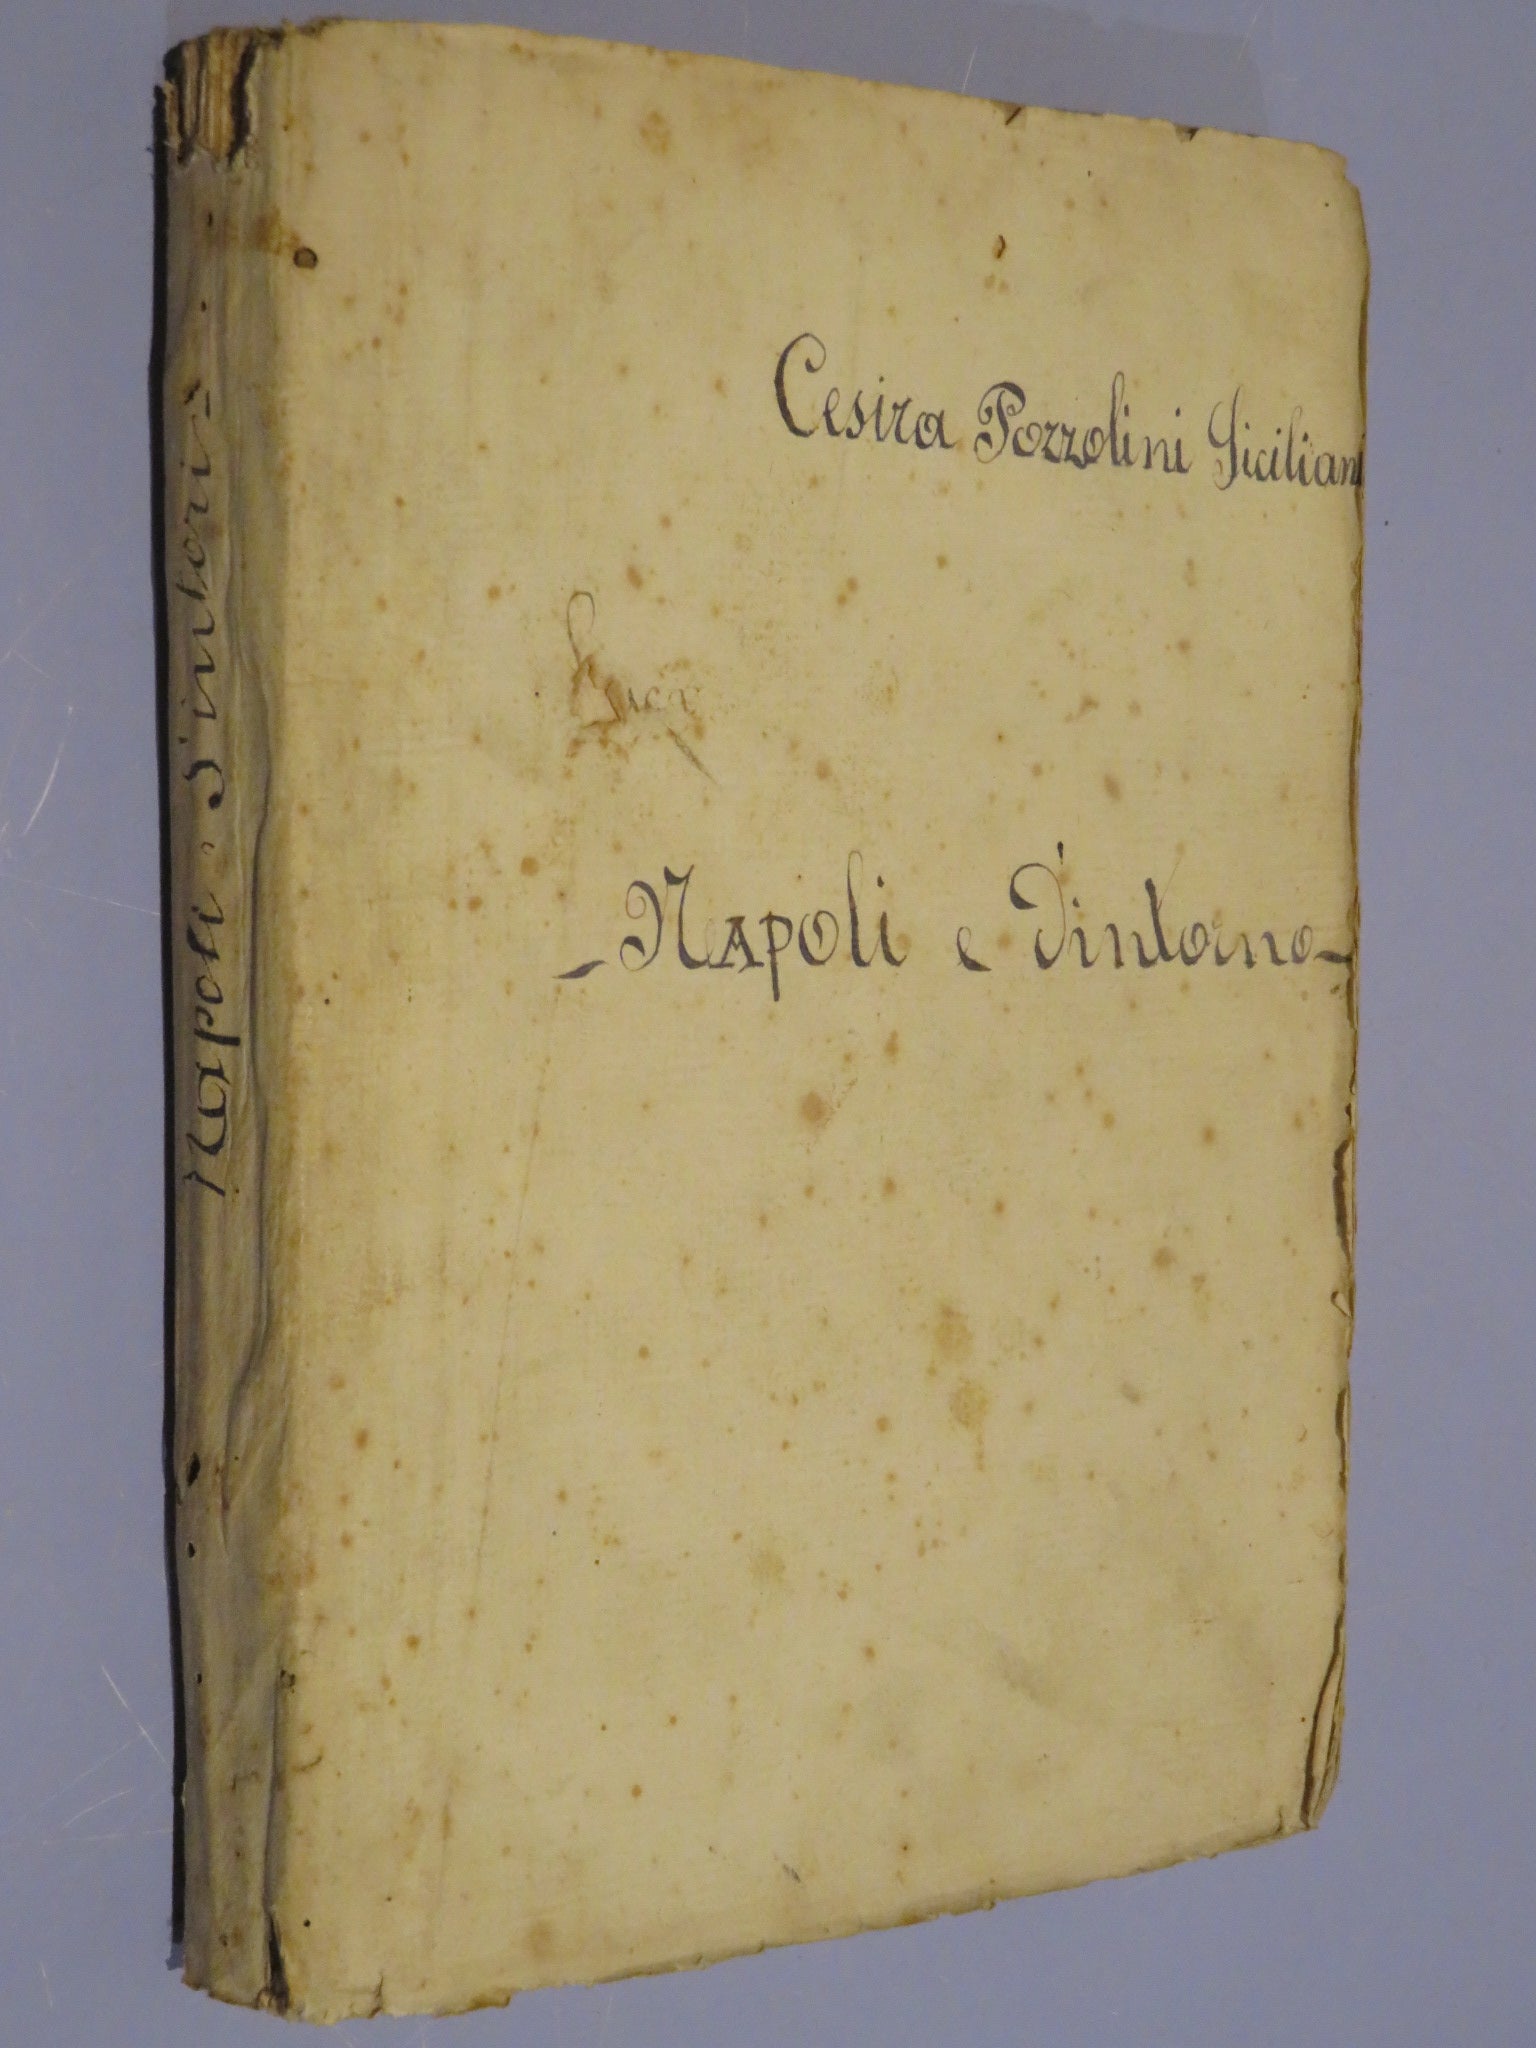 Cesira Pozzolini Siciliani
- Napoli e D'intorno -
Napoli - D'intorni -